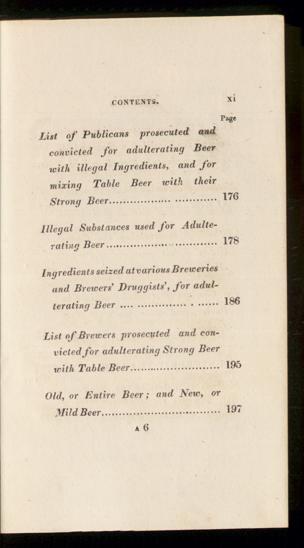 CONTENTS. xi
Page
List of Publicans prosecuted and
convicted for adulterating Beer
with illegal Ingredients, and for
mixing Table Beer with their
Strong Beer.................. ............ 176
Illegal Substances used for Adulte-
rating Beer ................................ 178
Ingredients seized at various Breweries
and Brewers' Druggists', for adul-
terating Beer .... ................ . ...... 186
List of Brewers prosecuted and con-
victed for adulterating Strong Beer
with Table Beer......................... 195
Old, or Entire Beer; and New, or
Mild Beer................................. 197
A 6